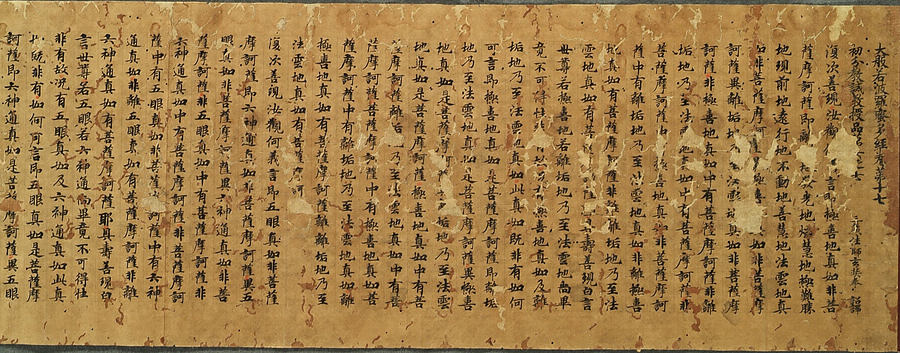 大般若波羅蜜多經卷第十七
初分教誡教授品第七之七 三藏法師玄奘奉 詔譯
復次善現汝觀 言即極喜地真如非菩
薩摩訶薩即離 光地焰慧地極難勝
地現前地遠行地不動地善慧地法雲地真
如非菩薩摩訶薩 極喜 真如非菩
薩摩訶薩異離垢 法雲地真如非菩薩摩
訶薩非極喜地真如中有菩薩摩訶薩非離
垢地乃至法 地真如中有菩薩摩訶薩非
菩薩摩訶薩中 極喜地真如非菩薩摩訶
薩中有離垢地乃至法雲地真如非離極喜
地真如有菩薩 離垢地乃至法
雲地真如有菩 壽善現白言
世尊若極喜地若離垢地乃至法雲地尚畢
竟不可得性 極喜地真如及離
垢地乃至法雲地真如此真如既非有如何
可言即極喜地真如是菩薩摩訶薩即離垢
地乃至法雲地真如是菩薩 異極喜
地真如是菩薩摩訶薩異離垢地乃至法雲
地真如是菩薩摩訶薩極喜地真如中有菩
薩摩訶薩離垢地乃至法雲地真如中有菩
薩摩訶薩菩薩摩訶薩中有極喜地真如菩
薩摩訶薩中有離垢地乃至法雲地真如離
極喜地真如有菩薩摩訶薩離離垢地乃至
法雲地真如有菩薩摩訶
復次善現汝觀何義言即五眼真如非菩薩
摩訶薩即六神通真如 摩訶薩異五
眼真如非菩薩摩訶薩異六神通真如非菩
薩摩訶薩非五眼真如中有菩薩摩訶薩非
六神通真如中有菩薩摩訶薩非菩薩摩訶
薩中有五眼真如非菩薩摩訶薩中有六神
通真如非離五眼真如有菩薩摩訶薩非離
六神通真如有菩薩摩訶薩耶具壽善現白
言世尊若五眼若六神通尚畢竟不可得性
非有故況有五眼真如及六神通真如此真
如既非有如何可言即五眼真如是菩薩摩
訶薩即六神通真如是菩 摩訶薩異五眼